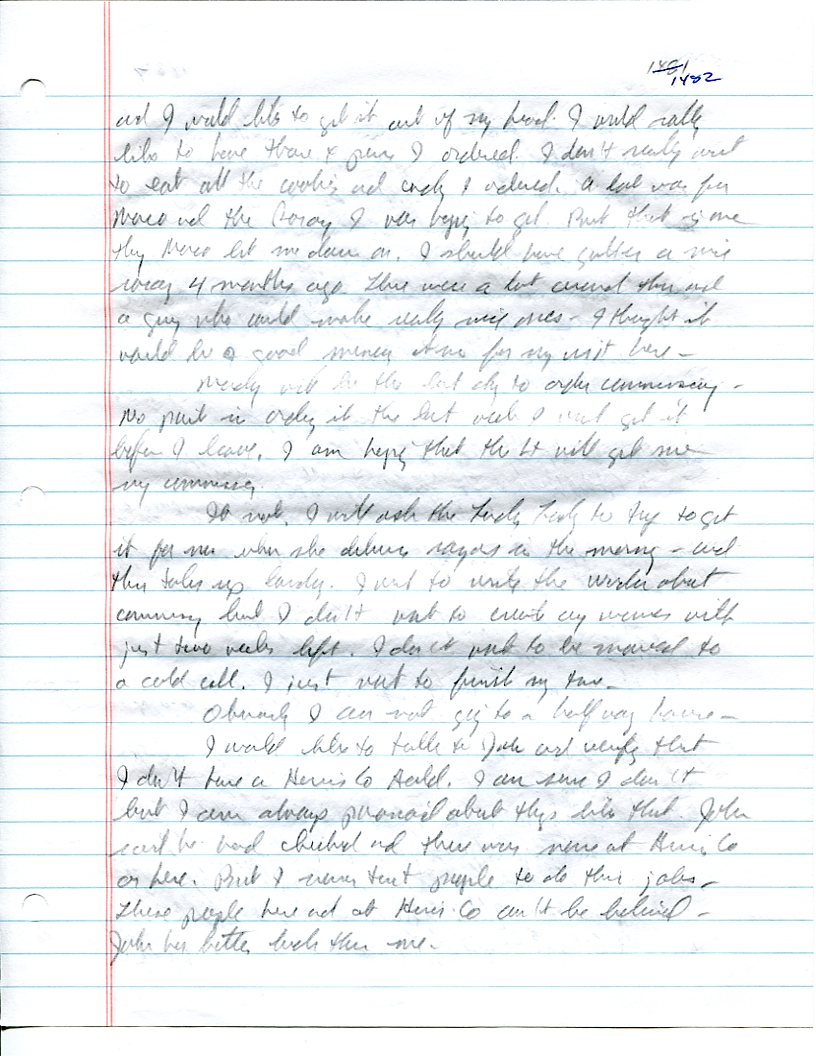 1481
1482
and I would like to get it out of my head. I would really
like to have those 4 pens I ordered. I don't really want
to eat all the cookies and candy I ordered. A lot was for
Marco and the I was hoping to get. But that is one
thing Marco let me down on. I should have gotten a nice
4 months ago. There were a lot around then and
a guy who could make really nice ones. I thought it
would be a good for my visit here -
will be the last day to order commissary -
No point in ordering it the last week I won't get it
before I leave. I am hoping that the Lt will get me
my commissary.
If not, I will ask the Lady to try to get
it for me when she delivers razors in the morning - and
this takes up laundry. I want to write the warden about
commissary but I don't want to create any waves with
just two weeks left. I don't want to be moved to
a cold cell. I just want to finish my time -
Obviously I am not going to a half way house -
I would like to talk to John and verify that
I don't have a Harris Co Hold. I am sure I don't
but I am always paranoid about things like that. John
said he had checked and there was none at Harris Co
or here. But I never trust people to do their jobs -
These people here and at Harris Co can't be believed -
John has better luck than me -